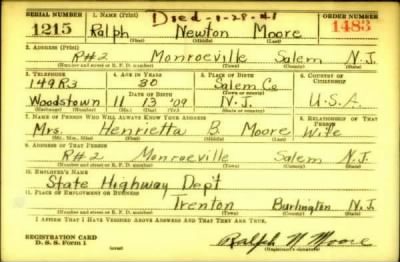 Died-1-28-41
SERIAL NUMBER 1. NAME (Print) ORDER NUMBER
1215 Ralph Newton Moore 1483
(First) (Middle) (Last)
2. ADDRESS (Print)
R#2 Monroeville Salem N.J.
(Number and street or R. F. D. number) (Town) (County) (State)
3. TELEPHONE 4. AGE IN YEARS 5. PLACE OF BIRTH 6. COUNTRY OF CITIZENSHIP
149R3 30 Salem Co
DATE OF BIRTH (Town or county)
Woodstown 11 13 '09 N.J. U.S.A
(Exchange) (Number) (Mo.) (Day) (Yr.) (State or country)
7. NAME OF PERSON WHO WILL ALWAYS KNOW YOUR ADDRESS 8. RELATIONSHIP OF THAT PERSON
Mrs. Henrietta B. Moore Wife
(Mr., Mrs., Miss) (First) (Middle) (Last)
9. ADDRESS OF THAT PERSON
R#2 Monroeville Salem N.J.
(Number and street or R. F. D. number) (Town) (County) (State)
10. EMPLOYER'S NAME
State Highway Dep't
11. PLACE OF EMPLOYMENT OR BUSINESS
Trenton Burlington N.J.
(Number and street or R. F. D. number) (Town) (County) (State)
I AFFIRM THAT I HAVE VERIFIED ABOVE ANSWERS AND THAT THEY ARE TRUE.
REGISTRATION CARD
D. S. S. Form 1 Ralph N Moore
(Registrant's signature)